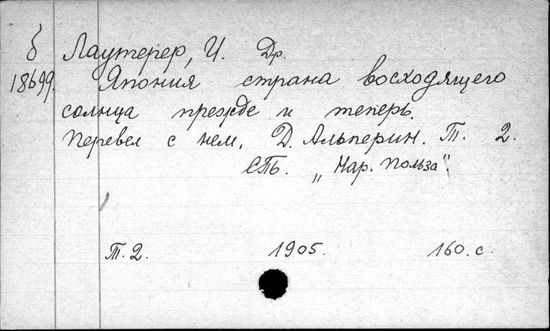 б Лаутерер, И. Др.
18699. Япония страна восходящего
солнца прежде и теперь.
Перевел с нем. Д. Альперин. Т. 2.
СПБ. „Нар. Польза".
Т. 2. 1905. 160. с.